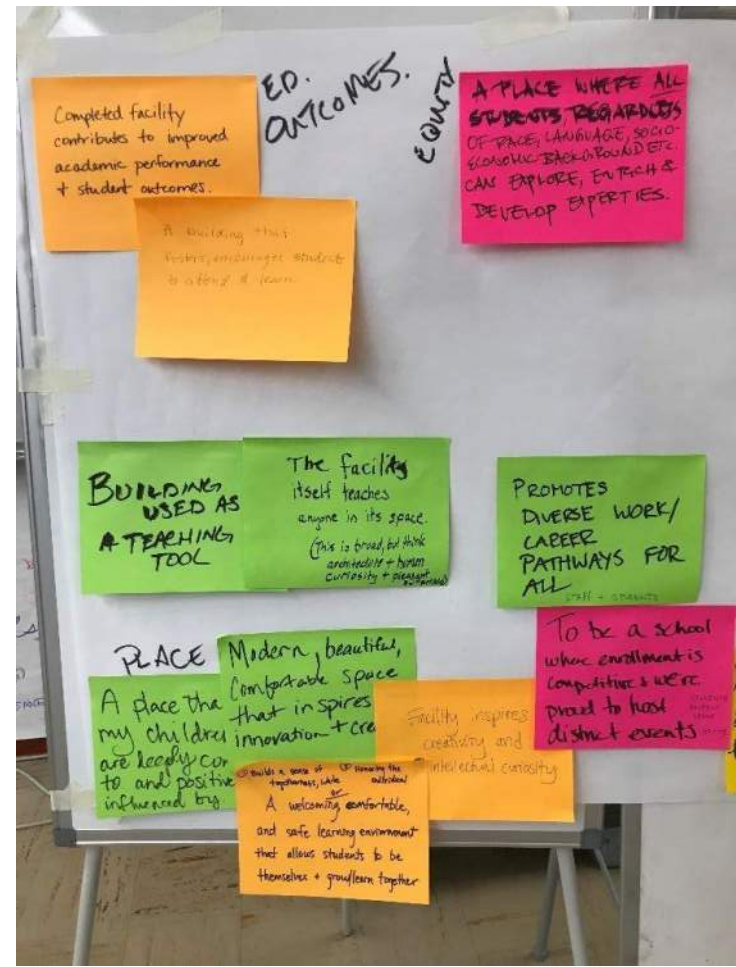 ED.
OUTCOMES.
Completed facility
contributes to improved
academic performance
+ student outcomes.
A building that
fosters, encourages students
to attend & learn
EQUITY
A PLACE WHERE ALL
STUDENTS, REGARDLESS
OF RACE, LANGUAGE, SOCIO-
ECONOMIC BACKGROUND ETC.
CAN EXPLORE, ENRICH &
DEVELOP EXPERTIES.
BUILDING
USED AS
A TEACHING
TOOL
The facility
itself teaches
anyone in its space.
(This is broad, but think
architecture + human
curiosity + pleasant
PROMOTES
DIVERSE WORK/
CAREER
PATHWAYS FOR
ALL
STAFF + STUDENTS
PLACE
A place tha
my children
are deeply con
to and positive
influenced by.
Modern, beautiful,
Comfortable space
that inspires
innovation + crea
Facility inspires
creativity and
intellectual curiosity
To be a school
where enrollment is
competitive & we're
proud to host
district events
① Builds a sense of
togetherness, while
② Honoring the
individual
or
A welcoming comfortable,
and safe learning environment
that allows students to be
themselves + grow/learn together